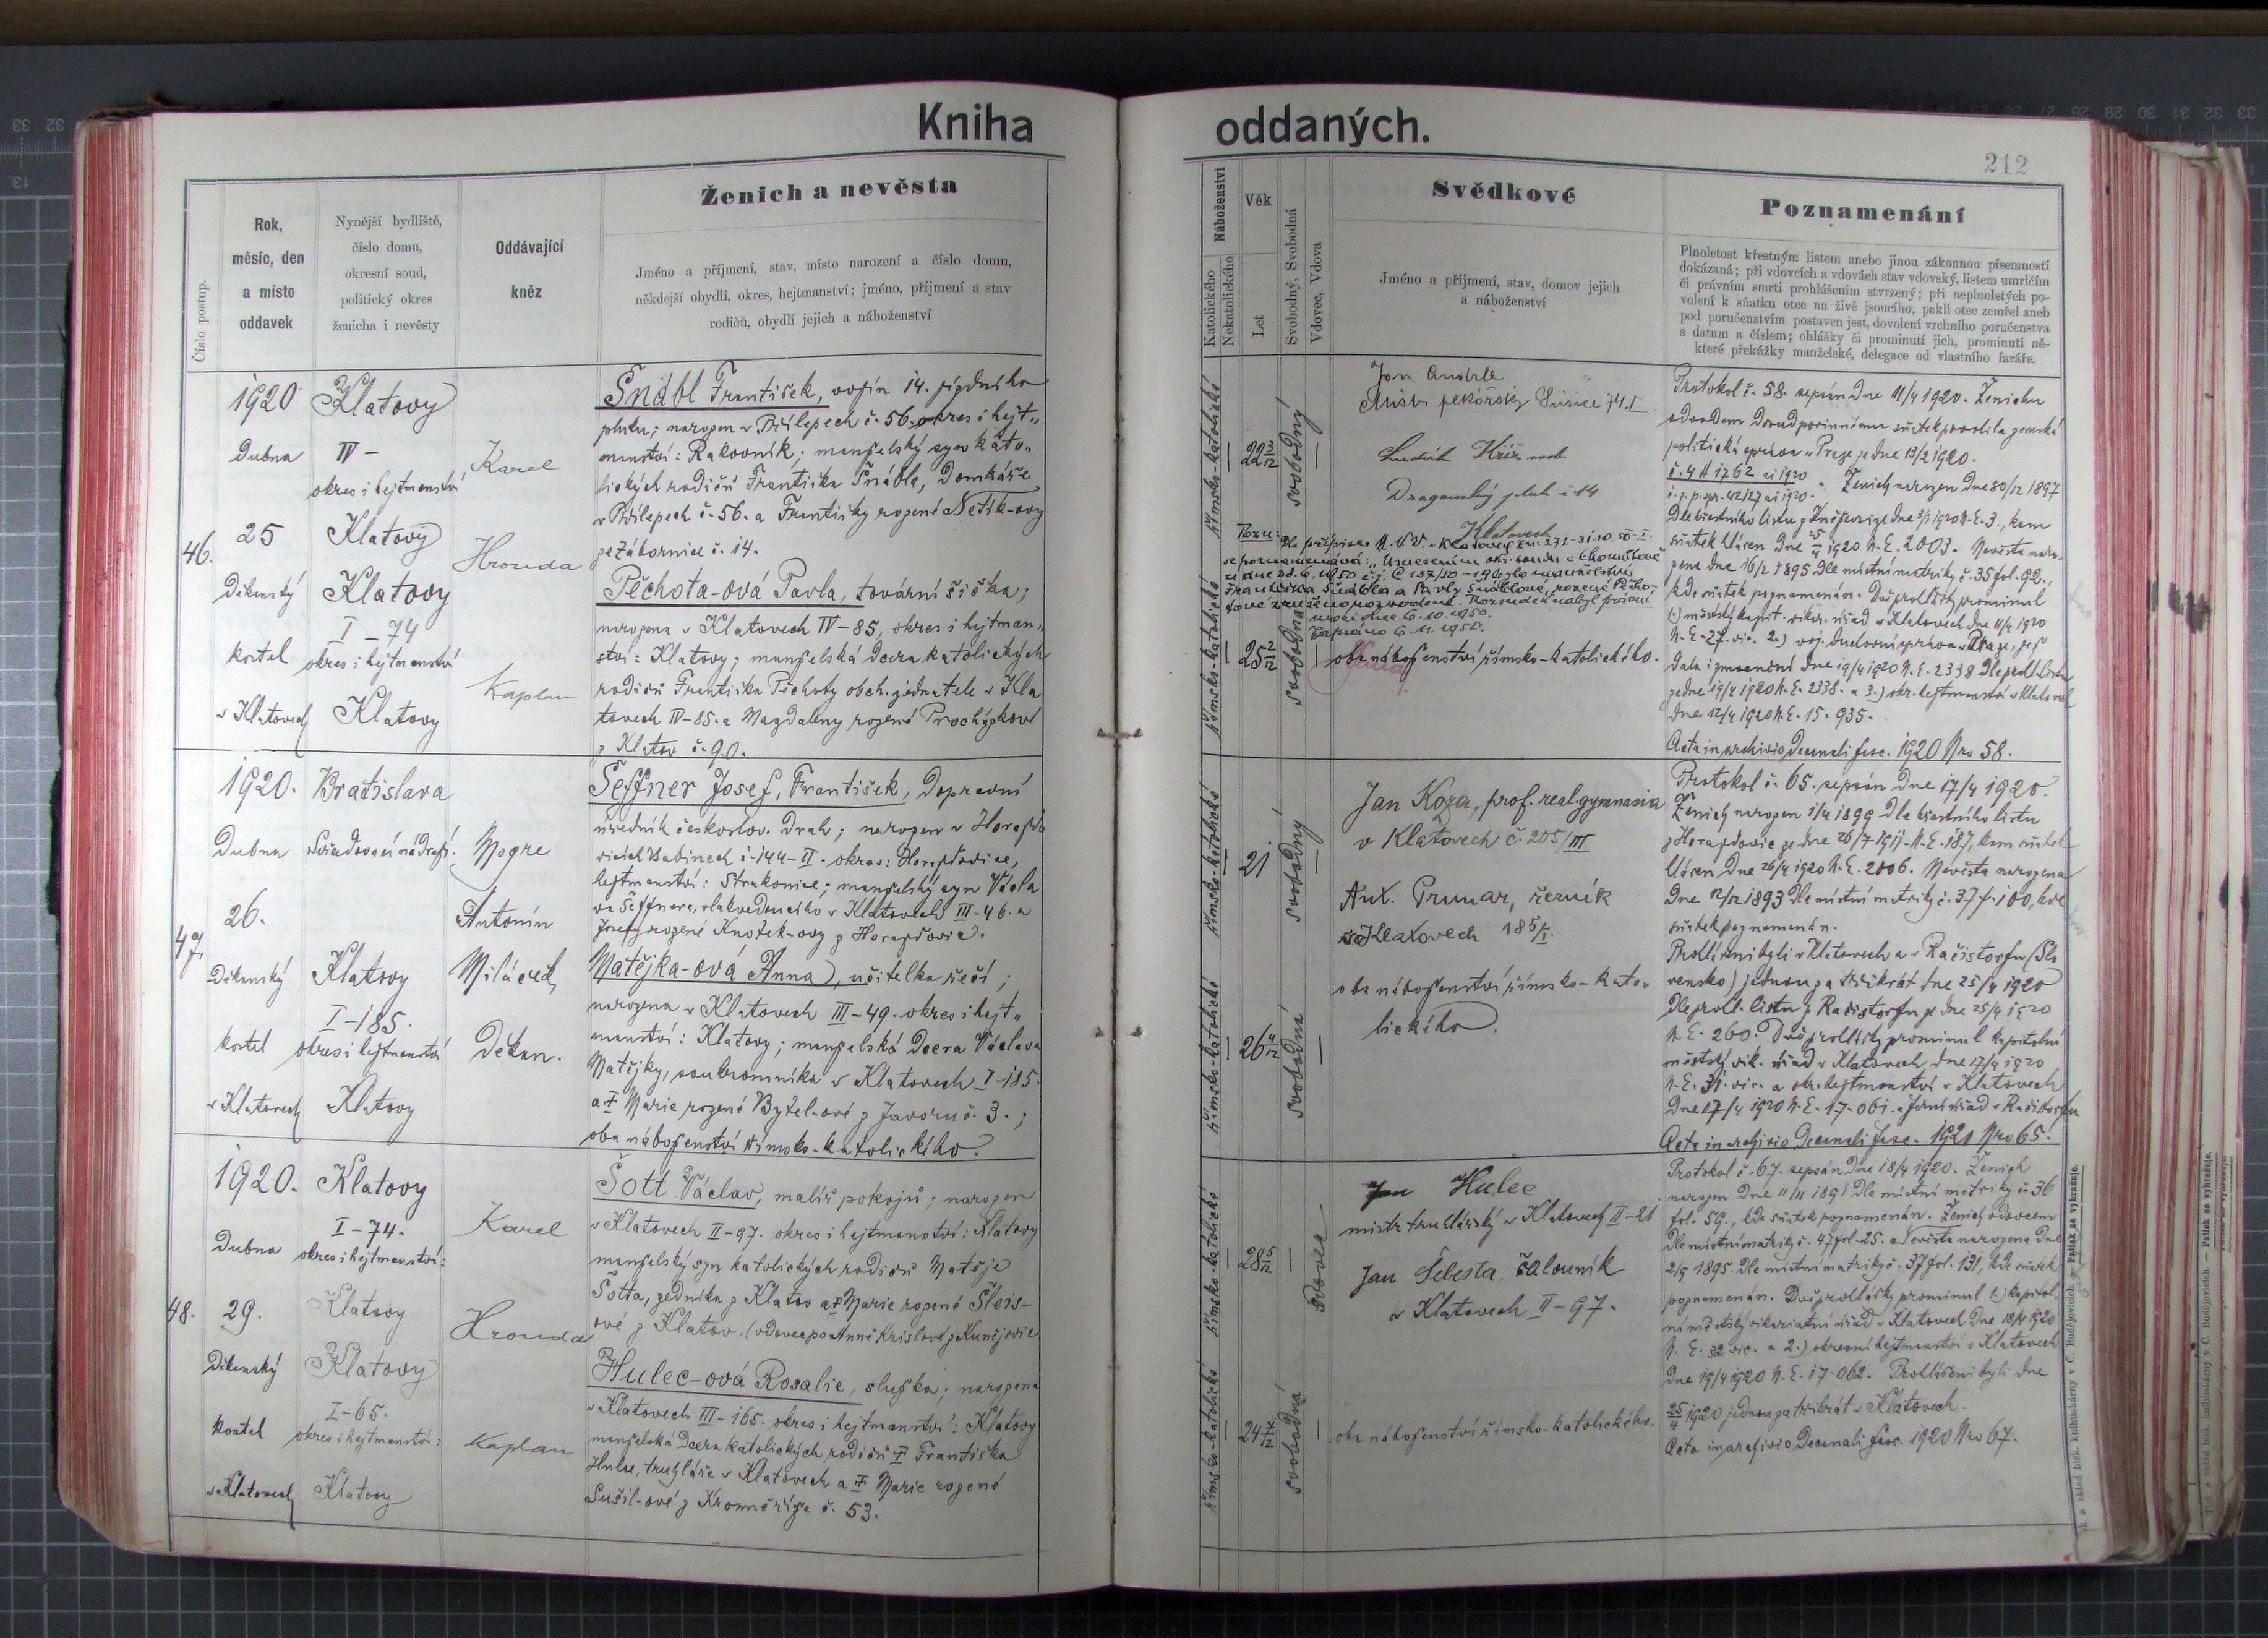 Kniha
oddaných.
212
Číslo postup.
Rok,
měsíc, den
a místo
oddavek
Nynější bydliště,
číslo domu,
okresní soud,
politický okres
ženicha i nevěsty
Oddávající
kněz
Ženich a nevěsta
Jméno a příjmení, stav, místo narození a číslo domu,
někdejší obydlí, okres, hejtmanství; jméno, příjmení a stav
rodičů, obydlí jejich a náboženství
Náboženství
Katolického
Nekatolického
Věk
Let
Svobodný, Svobodná
Vdovec, Vdova
Svědkové
Jméno a příjmení, stav, domov jejich
a náboženství
Poznamenání
Plnoletost křestným listem anebo jinou zákonnou písemností
dokázaná; při vdovcích a vdovách stav vdovský, listem umrlčím
či právním smrti prohlášením stvrzený; při neplnoletých po-
volení k sňatku otce na živě jsoucího, pakli otec zemřel aneb
pod poručenstvím postaven jest, dovolení vrchního poručenstva
s datum a číslem; ohlášky či prominutí jich, prominutí ně-
které překážky manželské, delegace od vlastního faráře.
46.
1920
Dubna
25
Děkanský
kostel
v Klatovech
Klatovy
IV –
okres i hejtmanství
Klatovy
Klatovy
I – 74
okres i hejtmanství
Klatovy
Karel
Hrouda
Kaplan
Šnábl František, vojín 14. jízdního
pluku; narozen v Přílepech č. 56. okres i hejt„
manství: Rakovník; manželský syn kato„
lických rodičů Františka Šnábla, Domkáře
v Přílepech č. 56. a Františky rozené Netík-ovy
ze Zábornice č. 14.
Pěchota-ová Pavla, tovární šička;
narozena v Klatovech IV–85, okres i hejtman„
ství: Klatovy; manželská dcera katolických
rodičů Františka Pěchoty obch. jednatele v Kla
tovech IV–85. a Magdaleny rozené Procházkové
z Klatov č. 90.
římsko-katolické
22 3/12
svobodný
římsko-katolické
25 2/12
svobodná
Jan Andrle
Mistr pekařský Sušice 74. I
Ludvík Kříž
Dragounský pluk č 14
Klatovech
Pozn:
Františka Šnábla a Pavly Šnáblové, rozené Pěcho„
tové zrušeno rozvodem. Rozsudek nabyl právní
moci dne 6. 10. 1950.
Zapsáno 6. 11. 1950.
oba náboženství římsko-katolického.
Protokol č. 58. sepsán dne 11/4 1920. Ženichu
politická správa v Praze ze dne 13/2 1920.
Ženich narozen dne 30/12 1897
sňatek hlášen dne 25/4 1920 N. E. 2003. Nevěsta naro„
zena dne 16/2 1895 dle místní matriky č. 35 fol. 92.,
kde sňatek poznamenán. Dvě prohlášky prominul
1.) městský kapit. vikar. úřad v Klatovech dne 11/4 1920
N. E. 27. vic. 2.) voj. duchovní správa v Praze, jež
ze dne 19/4 1920 N. E. 2338. a 3.) okr. hejtmanství v Klatovech
dne 12/4 1920 N. E. 15. 935.
Acta in archivio Decanali fasc. 1920 Nro 58.
47.
1920.
Dubna
26.
Děkanský
kostel
v Klatovech
Bratislava
Seřaďovací nádraží.
Klatovy
I–185.
okres i hejtmanství
Klatovy
Msgre
Antonín
Miláček,
Děkan.
Šeffner Josef, František, Dopravní
úředník českoslov. Drah; narozen v Horažďo
vicích Babinech č. 144–II. okres: Horažďovice,
hejtmanství: Strakonice; manželský syn Václa
va Šeffnera, vlakvedoucího v Klatovech III–46. a
Josefy rozené Knotek-ovy z Horažďovic.
Matějka-ová Anna, učitelka řečí;
narozena v Klatovech III–49. okres i hejt„
manství: Klatovy; manželská Dcera Václava
Matějky, soukromníka v Klatovech I–185.
a † Marie rozené Bytel-ové z Javoru č. 3.;
oba náboženství římsko-katolického.
římsko-katolické
21
svobodný
římsko-katolické
26 4/12
svobodná
Jan Koza, prof. real. gymnasia
v Klatovech č. 205/III
Ant. Prunar, řezník
v Klatovech 185/I.
oba náboženství římsko-kato„
lického.
Protokol č. 65. sepsán dne 17/4 1920.
Ženich narozen 1/4 1899 dle křestního listu
z Horažďovic ze dne 26/7 1911. N. E. 187, kam sňatek
hlášen dne 26/4 1920 N. E. 2006. Nevěsta narozena
dne 12/12 1893 dle místní matriky č. 37 f. 100, kde
sňatek poznamenán.
Prohlášeni byli v Klatovech a v Račistorfu (Slo
vensko) jednou za třikrát dne 25/4 1920
dle prohl. listu z Račistorfu ze dne 25/4 1920
N. E. 260. Dvě prohlášky prominul kapitolní
městský vik. úřad v Klatovech dne 17/4 1920
N. E. 31. vic. a okr. hejtmanství v Klatovech
dne 17/4 1920 N. E. 17. 061. a farní úřad v Račistorfu
Acta in archivio Decanali fasc. 1921 Nro 65.
48.
1920.
Dubna
29.
Děkanský
kostel
v Klatovech
Klatovy
I–74.
okres i hejtmanství:
Klatovy
Klatovy
I–65.
okres i hejtmanství:
Klatovy
Karel
Hrouda
Kaplan
Šott Václav, malíř pokojů; narozen
v Klatovech II–97. okres i hejtmanství: Klatovy
manželský syn katolických rodičů Matěje
Šotta, zedníka z Klatov a † Marie rozené Šleis-
ové z Klatov. (vdovec po Anně Krislové z Kunějovic
Hulec-ová Rosalie, služka; narozena
v Klatovech III–165. okres i hejtmanství: Klatovy
manželská Dcera katolických rodičů † Františka
Hulce, truhláře v Klatovech a † Marie rozené
Sušil-ové z Kroměříže č. 53.
římsko-katolické
28 5/12
vdovec
římsko-katolické
24 7/12
svobodná
Jan Hulec
mistr truhlářský v Klatovech II–21
Jan Šelesta, čalouník
v Klatovech II–97.
oba náboženství římsko-katolického.
Protokol č. 67. sepsán dne 18/4 1920. Ženich
narozen dne 11/11 1891 dle místní matriky č. 36
fol. 59., kde sňatek poznamenán. Ženich vdovcem
dle místní matriky č. 47 fol. 25. a Nevěsta narozena dne
2/9 1895. dle místní matriky č. 37 fol. 131, kde sňatek
poznamenán. Dvě prohlášky prominul 1.) kapitol.
ní městský vikariatní úřad v Klatovech dne 18/4 1920
N. E. 32 vic. a 2.) okresní hejtmanství v Klatovech
dne 19/4 1920 N. E. 17. 062. Prohlášeni byli dne
25/4 1920 jednou za třikrát v Klatovech.
Acta in archivio Decanali fasc. 1920 Nro 67.
k a sklad bisk. knihtiskárny v Č. Budějovicích. – Patisk se vyhražuje.